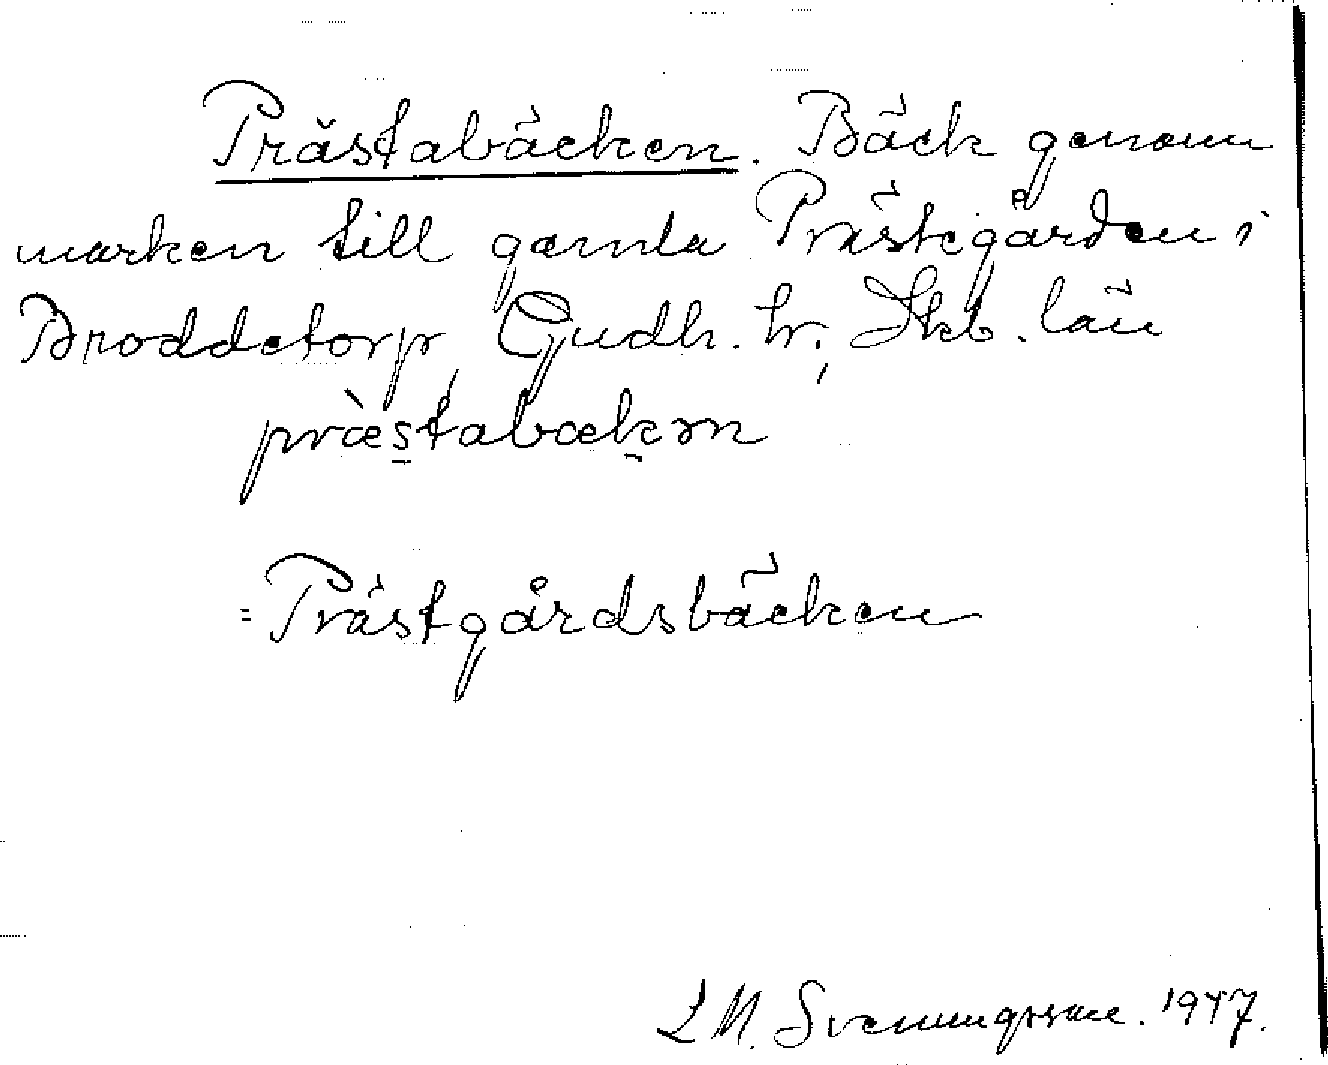 Prästabäcken. Bäck genom
marken till gamla Prästegården i
Broddetorp, Gudh. hr; Skb. län
præ̀stabækɔn
=Prästgårdsbäcken
L M. Svenungsson. 1947.